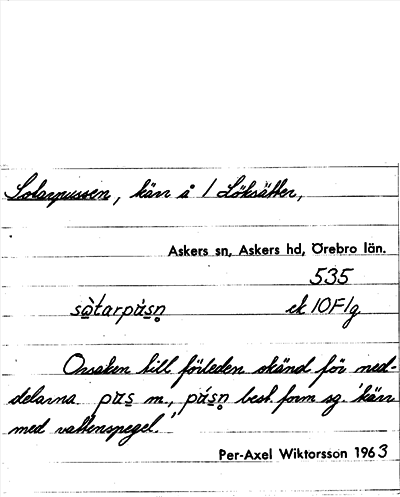 Sotarpussen, kärr å 1 Löksätter,
Askers sn, Askers hd, Örebro län.
535
sòtarpúsn̥ ek 10F1g
Orsaken till förleden okänd för med-
delarna. pus m., púsn̥ best. form sg. 'kärr
med vattenspegel.'
Per-Axel Wiktorsson 1963